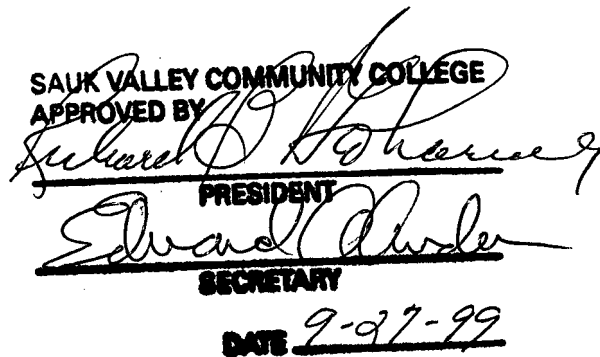 SAUK VALLEY COMMUNITY COLLEGE
APPROVED BY
Richard
PRESIDENT
Edward
SECRETARY
DATE 9-27-99